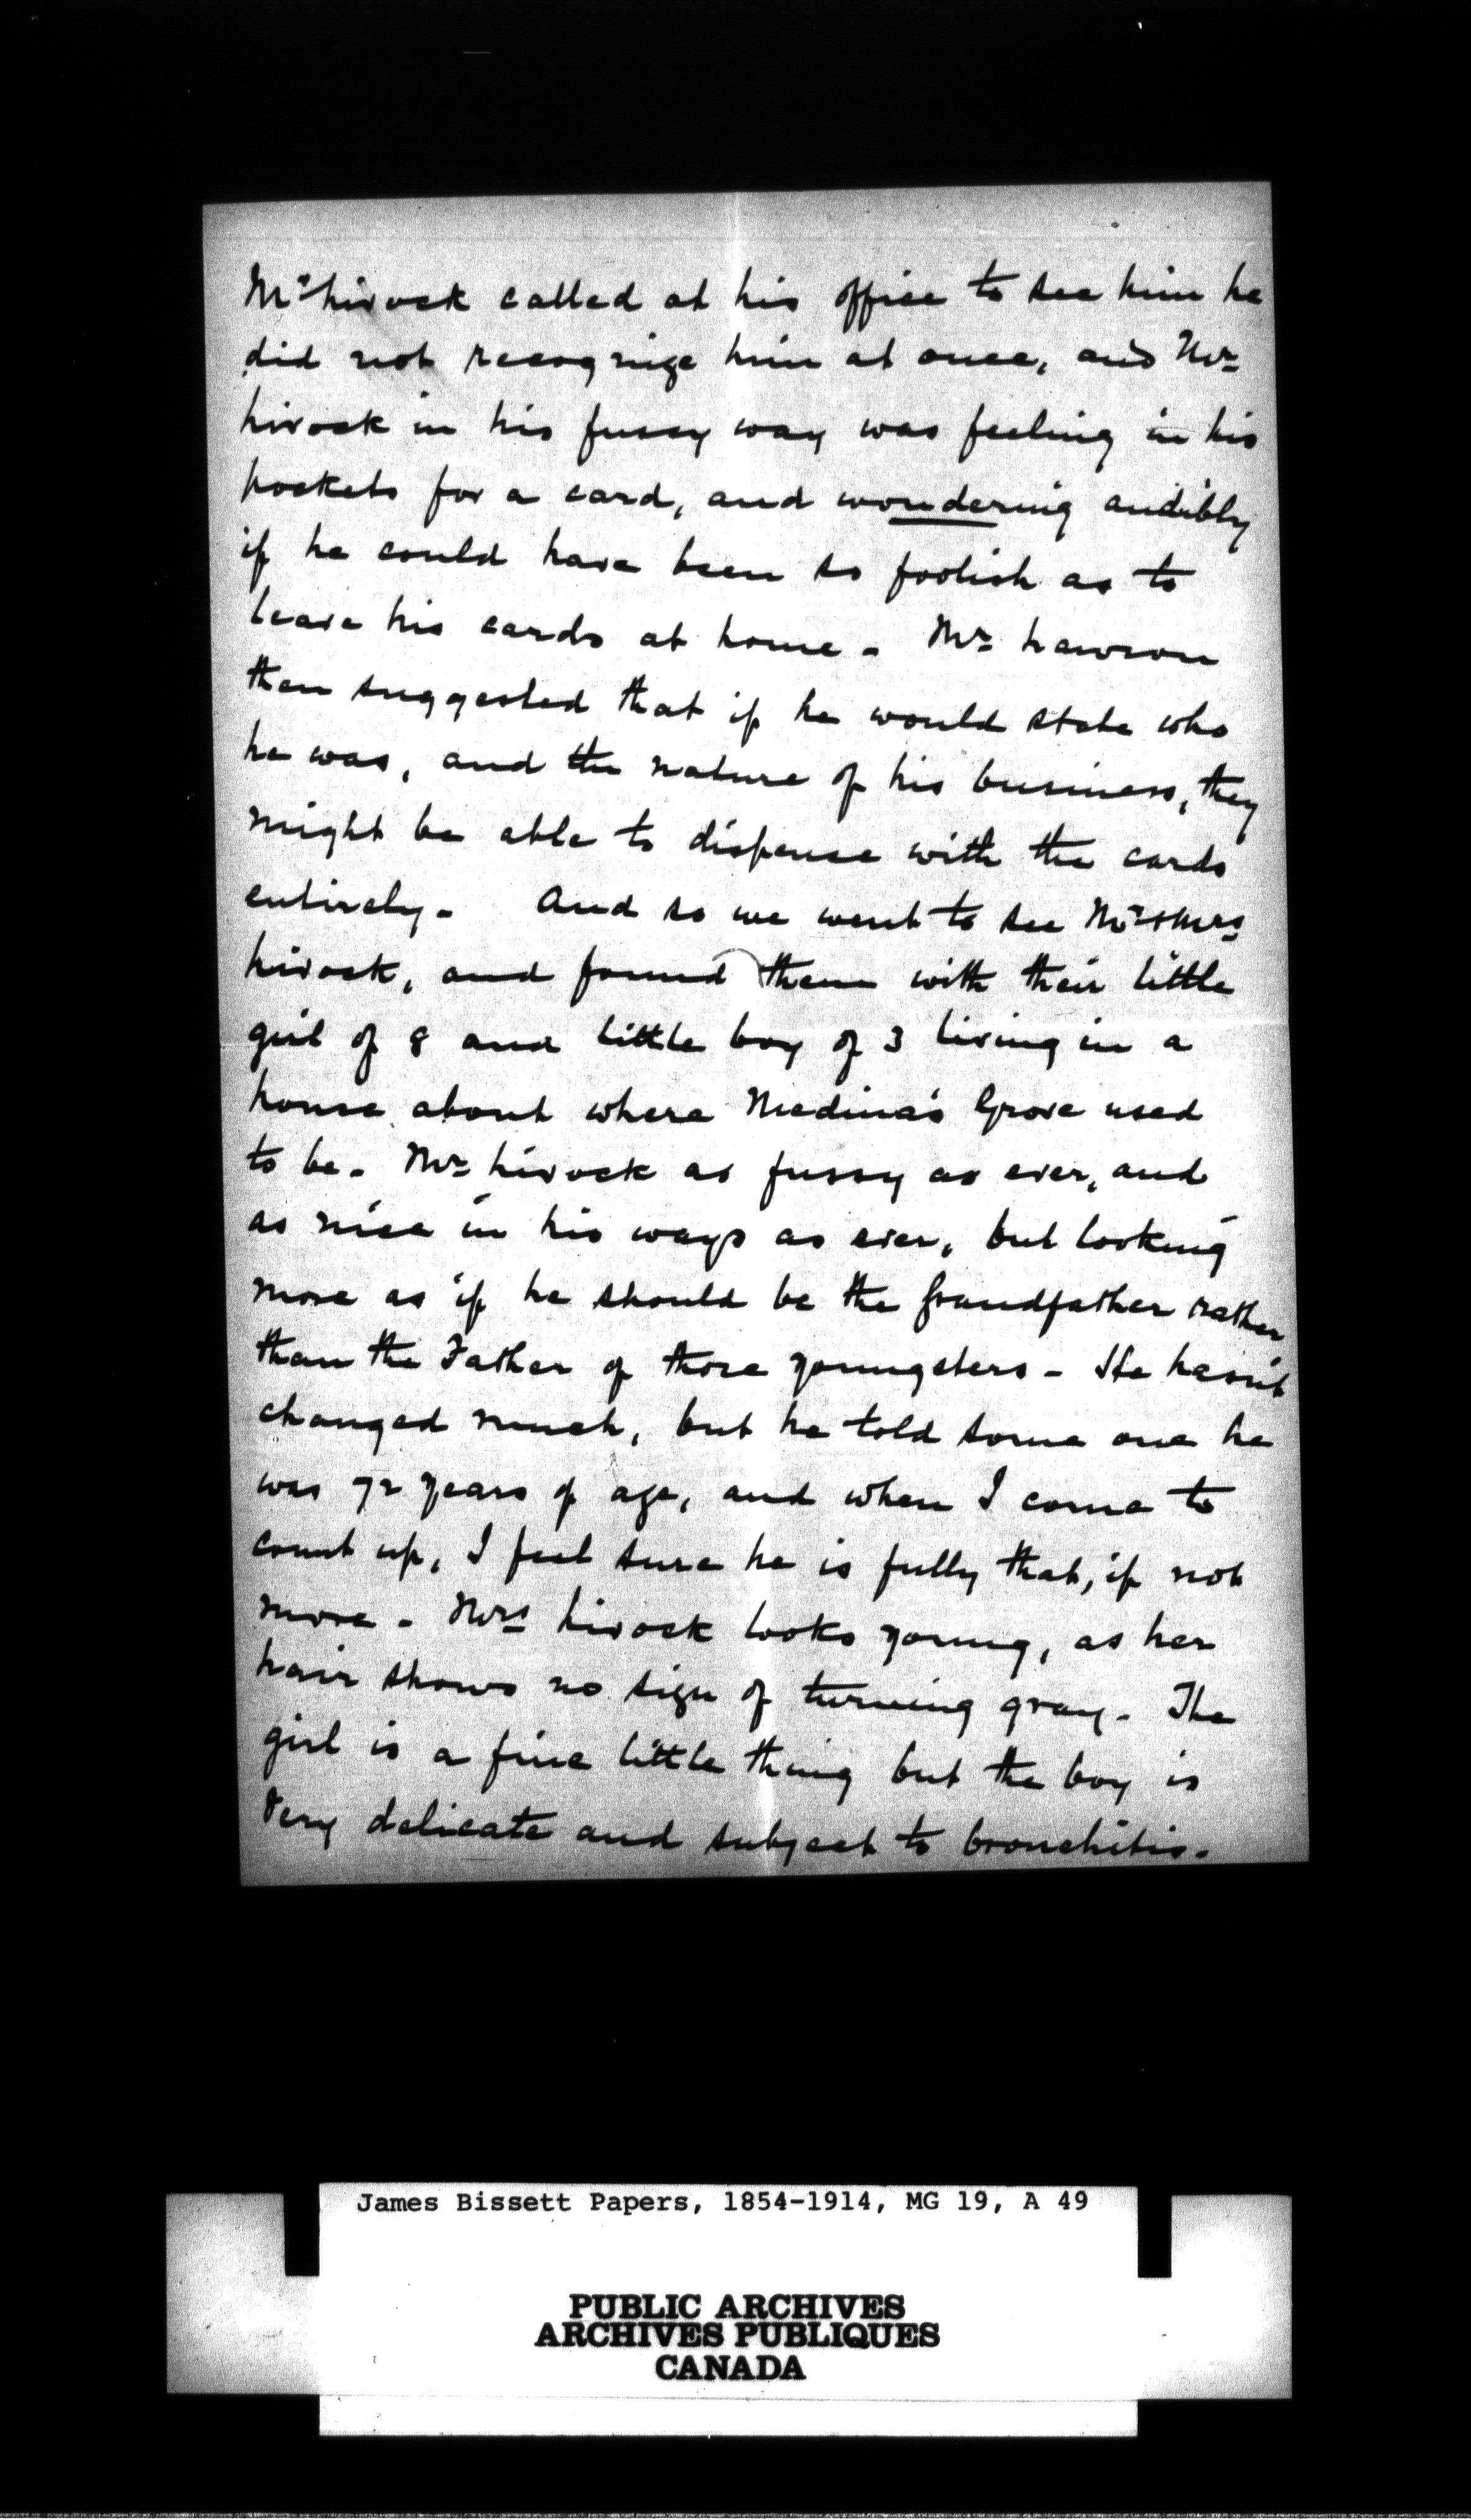 Mr Livock called at his office to see him he
did not recognize him at once, and Mr
Livock in his fussy way was feeling in his
pockets for a card, and wondering audibly
if he could have been so foolish as to
leave his cards at home. Mr Lawson
then suggested that if he would state who
he was, and the nature of his business, they
might be able to dispense with the cards
entirely. And so we went to see Mr & Mrs
Livock, and found them with their little
girl of 8 and little boy of 3 living in a
house about where Medina's Grove used
to be. Mr Livock as fussy as ever, and
as nice in his ways as ever, but looking
more as if he should be the Grandfather rather
than the Father of those youngsters - He hasn't
changed much, but he told some one he
was 72 years of age, and when I come to
count up, I feel sure he is fully that, if not
more. Mrs Livock looks young, as her
hair shows no sign of turning gray. The
girl is a fine little thing but the boy is
very delicate and subject to bronchitis.
James Bissett Papers, 1854-1914, MG 19, A 49
PUBLIC ARCHIVES
ARCHIVES PUBLIQUES
CANADA